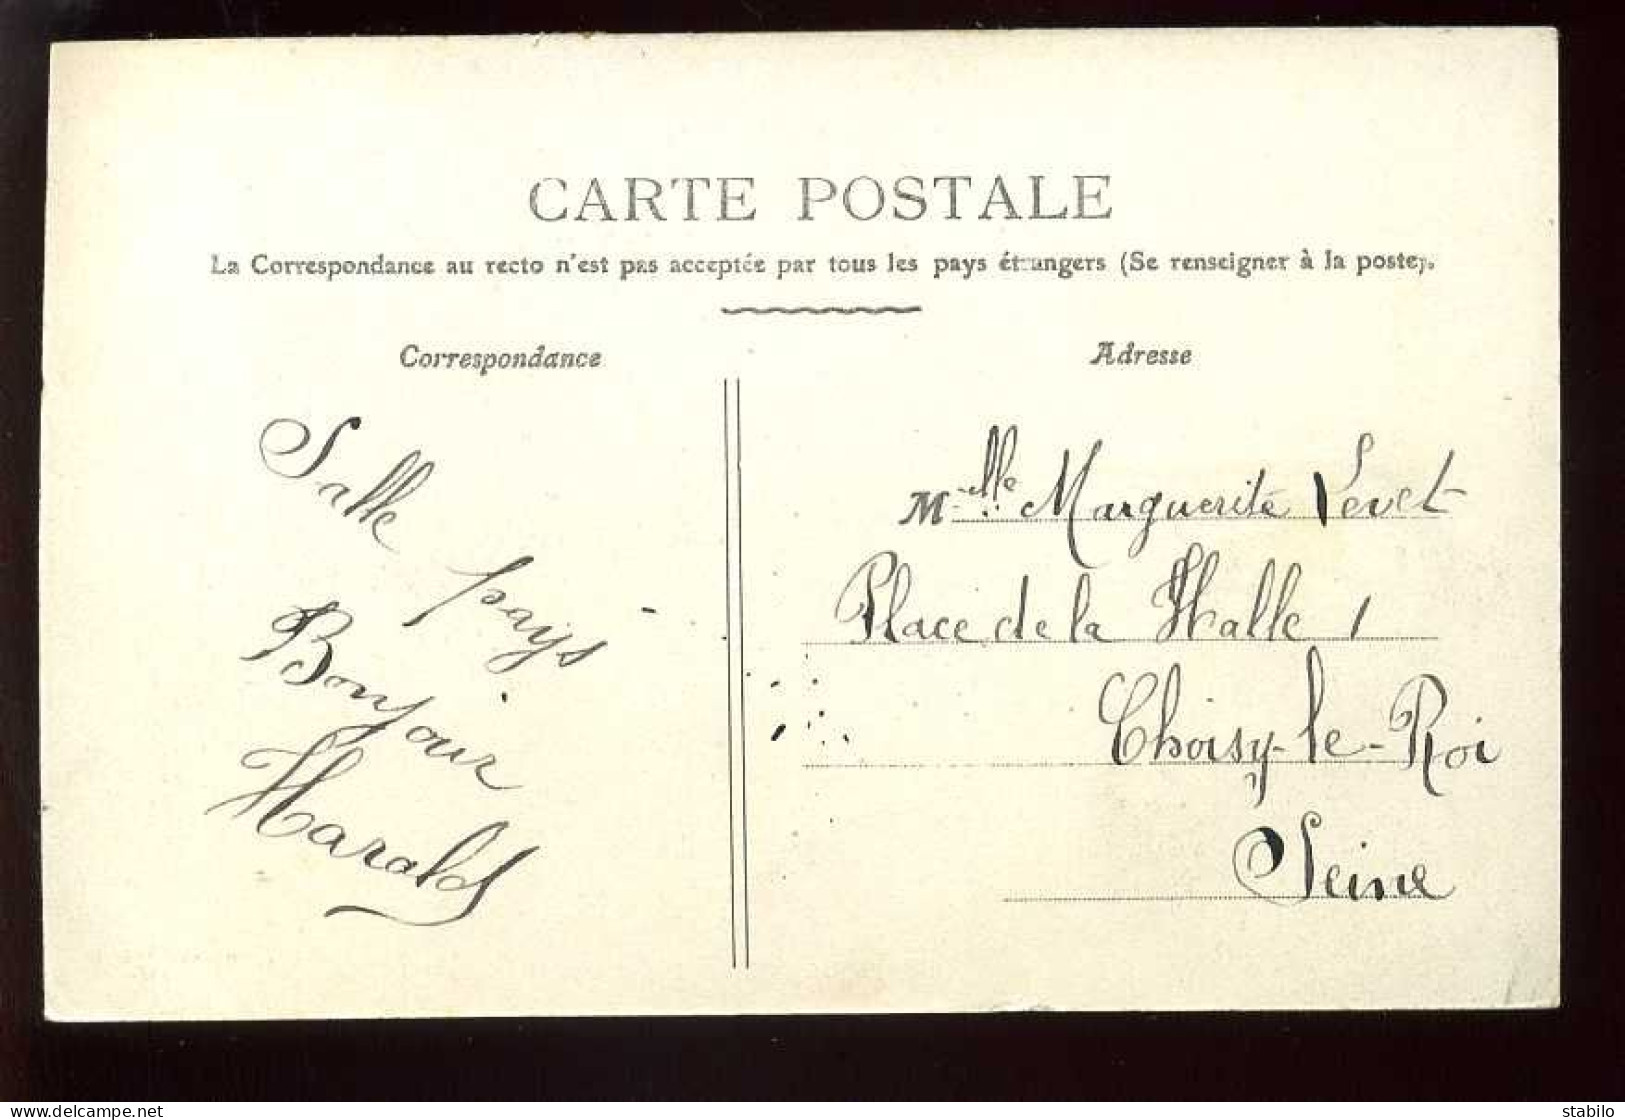 CARTE POSTALE
La Correspondance au recto n'est pas acceptée par tous les pays étrangers (Se renseigner à la poste).
Correspondance
Salle pays
Bonjour
Harald
Adresse
Mlle Marguerite Levet
Place de la Halle 1
Choisy-le-Roi
Seine
www.delcampe.net
stabilo